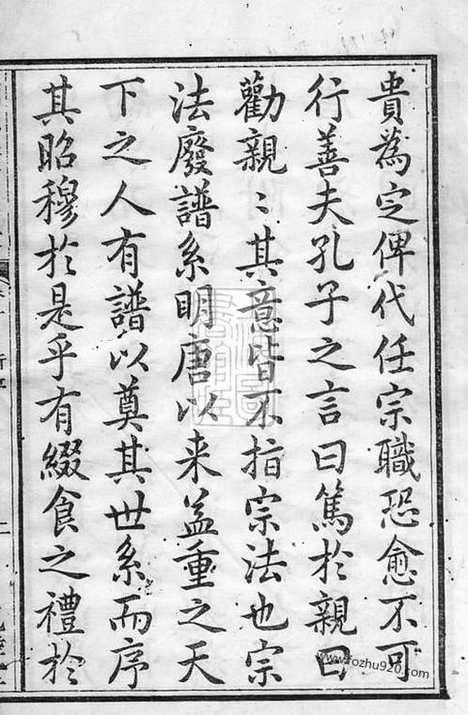 貴為定俾代任宗職恐愈不可
行善夫孔子之言曰篤於親曰
勸親〻其意皆不指宗法也宗
法廢譜系明唐以来益重之天
下之人有譜以奠其世系而序
其昭穆於是乎有綴食之禮於
www.fozhu920.com